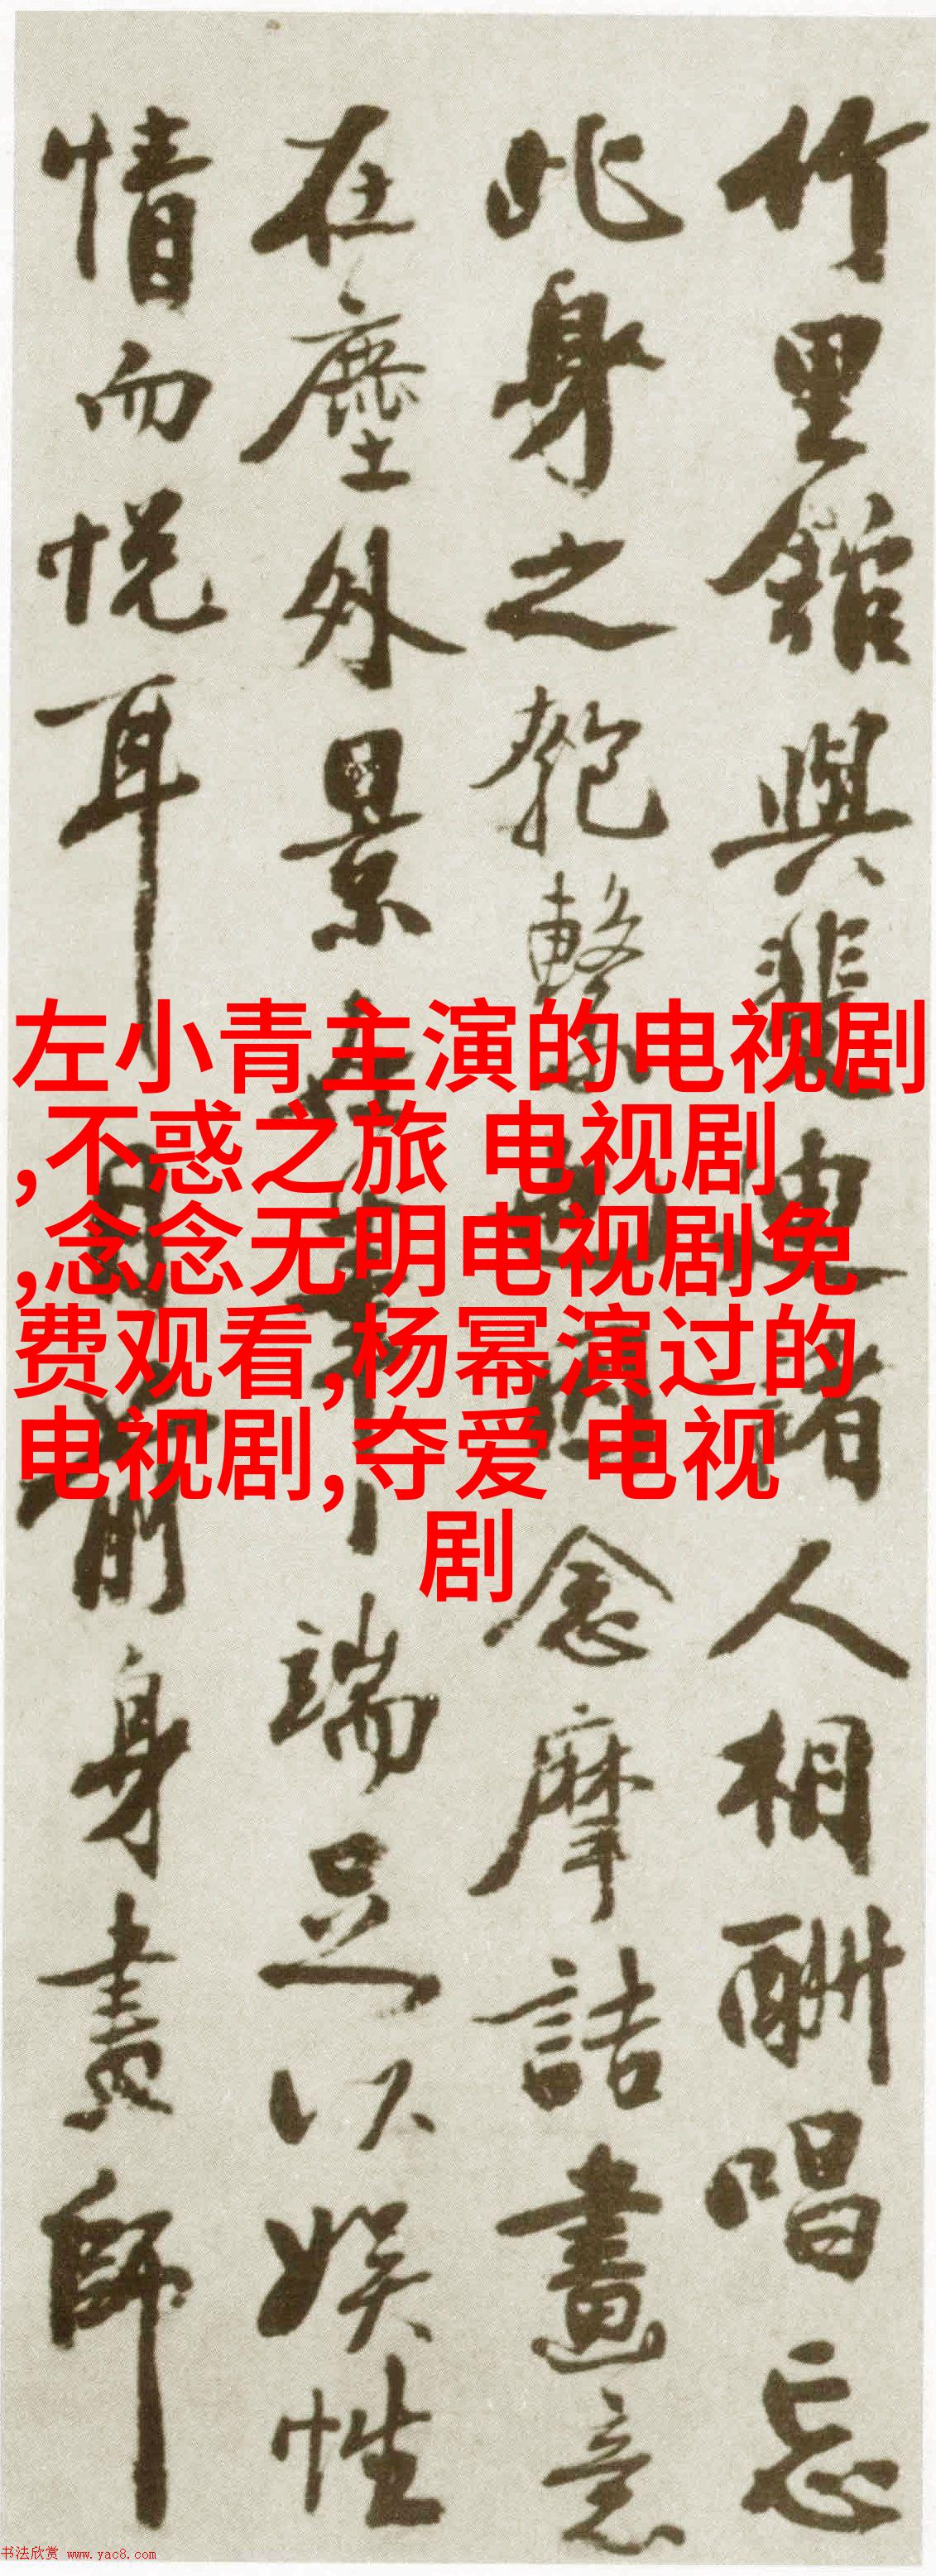 竹里館與斐迪諸人相酬唱忘
此身之匏繫因念摩詰畫意
在塵外景在筆端足以娛性
情而悅耳目前身畫師
左小青主演的电视剧
,不惑之旅 电视剧
,念念无明电视剧免
费观看,杨幂演过的
电视剧,夺爱 电视
剧
书法欣赏 www.yac8.com